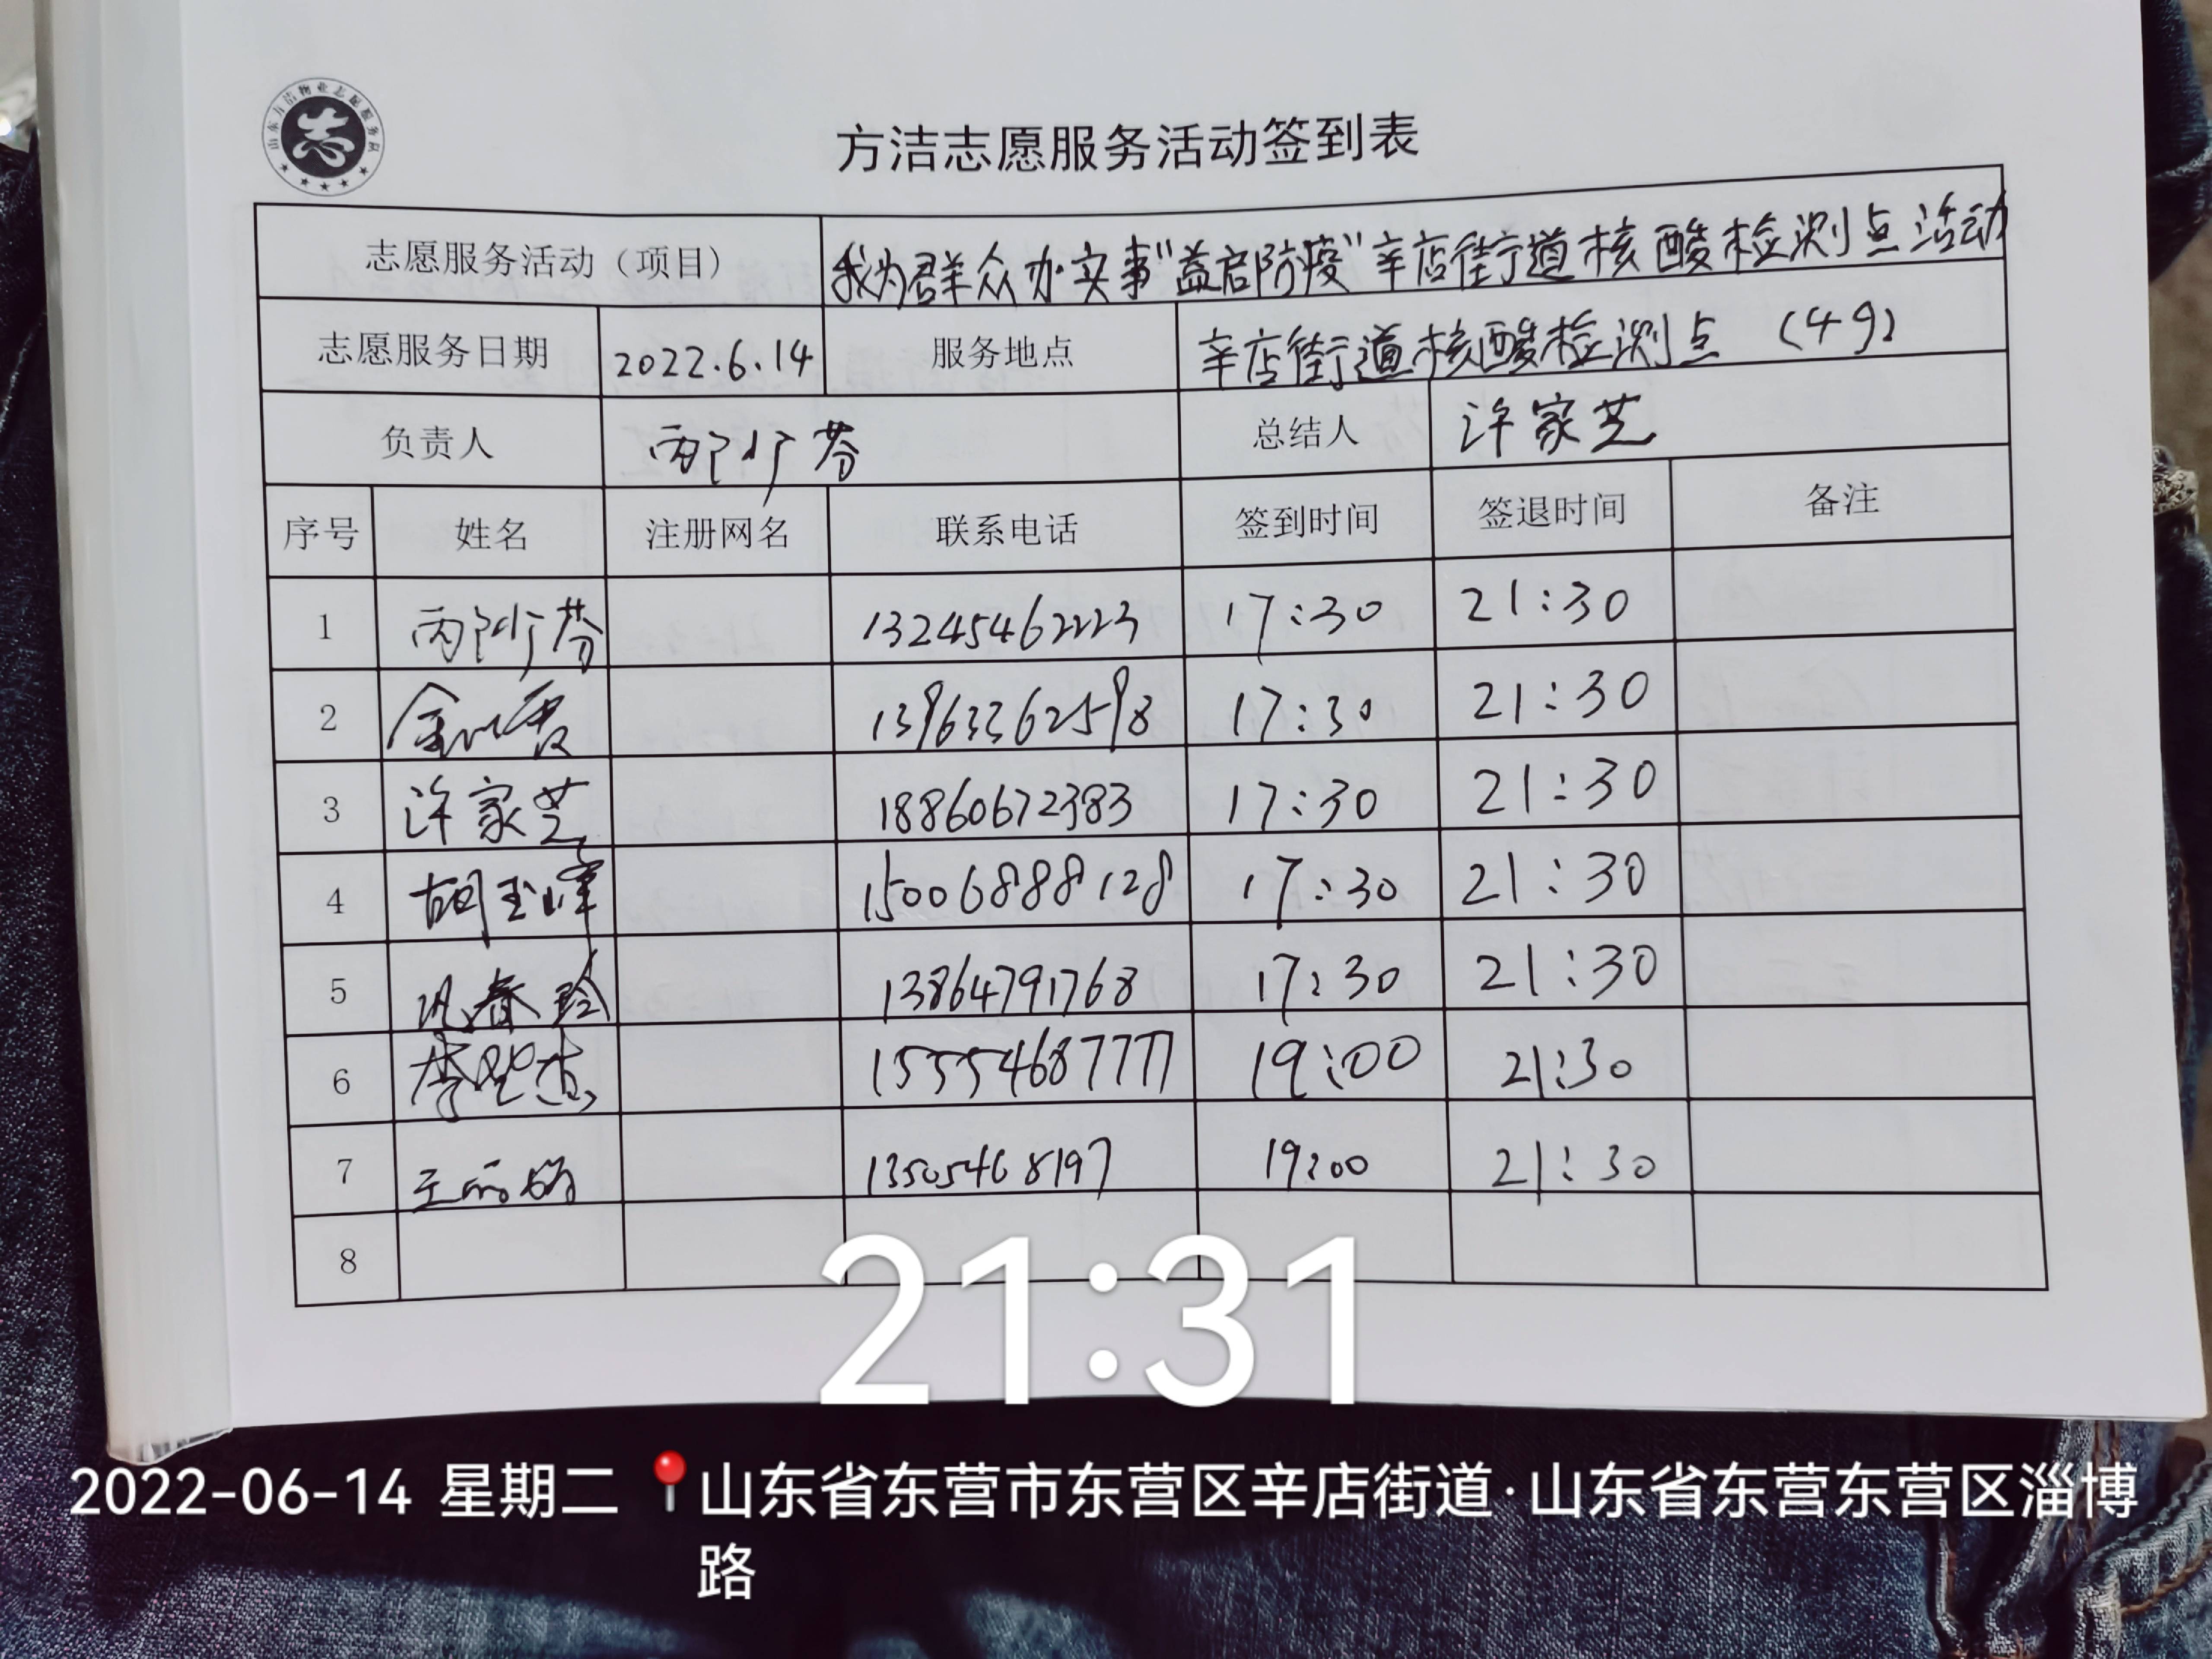 山东方洁物业志愿服务队
志
方洁志愿服务活动签到表
志愿服务活动（项目） 我为群众办实事"益启防疫"辛店街道核酸检测点活动
志愿服务日期 2022.6.14 服务地点 辛店街道核酸检测点 (49)
负责人 总结人 许家芝
序号 姓名 注册网名 联系电话 签到时间 签退时间 备注
1 13245462223 17:30 21:30
2 13963362598 17:30 21:30
3 许家芝 18860672383 17:30 21:30
4 胡玉峰 15006888128 17:30 21:30
5 13864791768 17:30 21:30
6 15554687777 19:00 21:30
7 13505468197 19:00 21:30
8
21:31
2022-06-14 星期二 山东省东营市东营区辛店街道·山东省东营东营区淄博
路